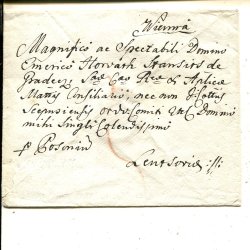 Vienna
Magnifico ac Spectabili Domino
Emerico Horvath Stansits de
Gradecz Sac Cae Rea & Aplicae
Mattis Consiliario, nec non I Cottus
Scepusiensis Ordrio Comiti &c Domino
mihi Singlr Colendissimo
Posonium
Leutsoviae